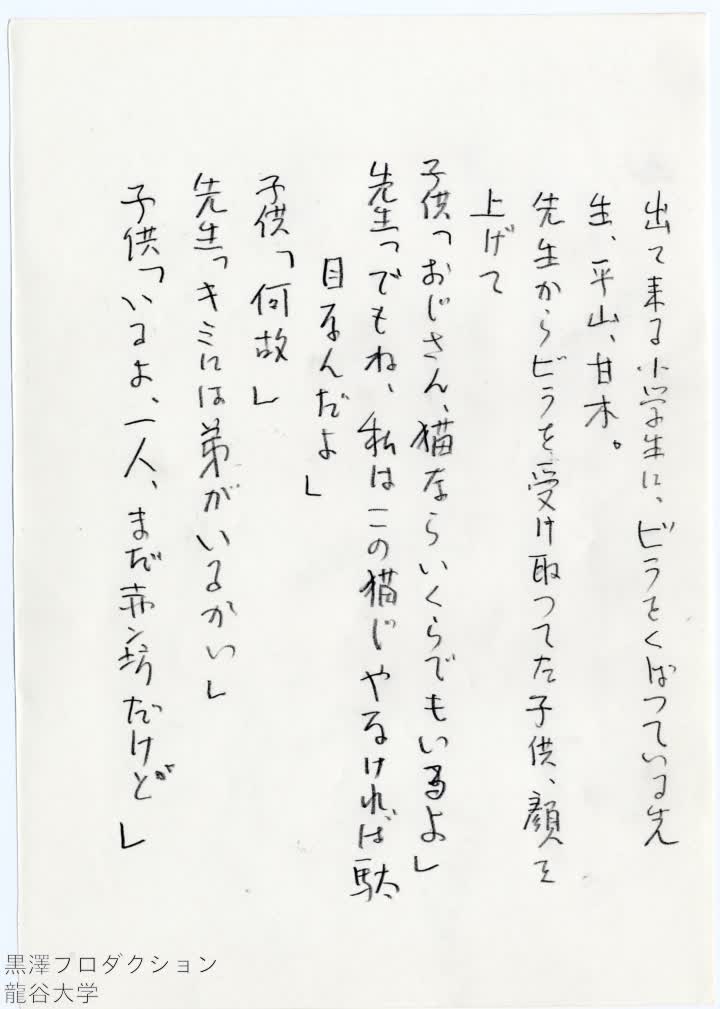 出て来る小学生に、ビラをくばつている先
生、平山、甘木。
先生からビラを受け取つてた子供、顔を
上げて
子供「おじさん、猫ならいくらでもいるよ」
先生「でもね、私はこの猫じやなければ駄
目なんだよ」
子供「何故」
先生「キミには弟がいるかい」
子供「いるよ、一人、まだ赤ン坊だけど」
黒澤プロダクション
龍谷大学